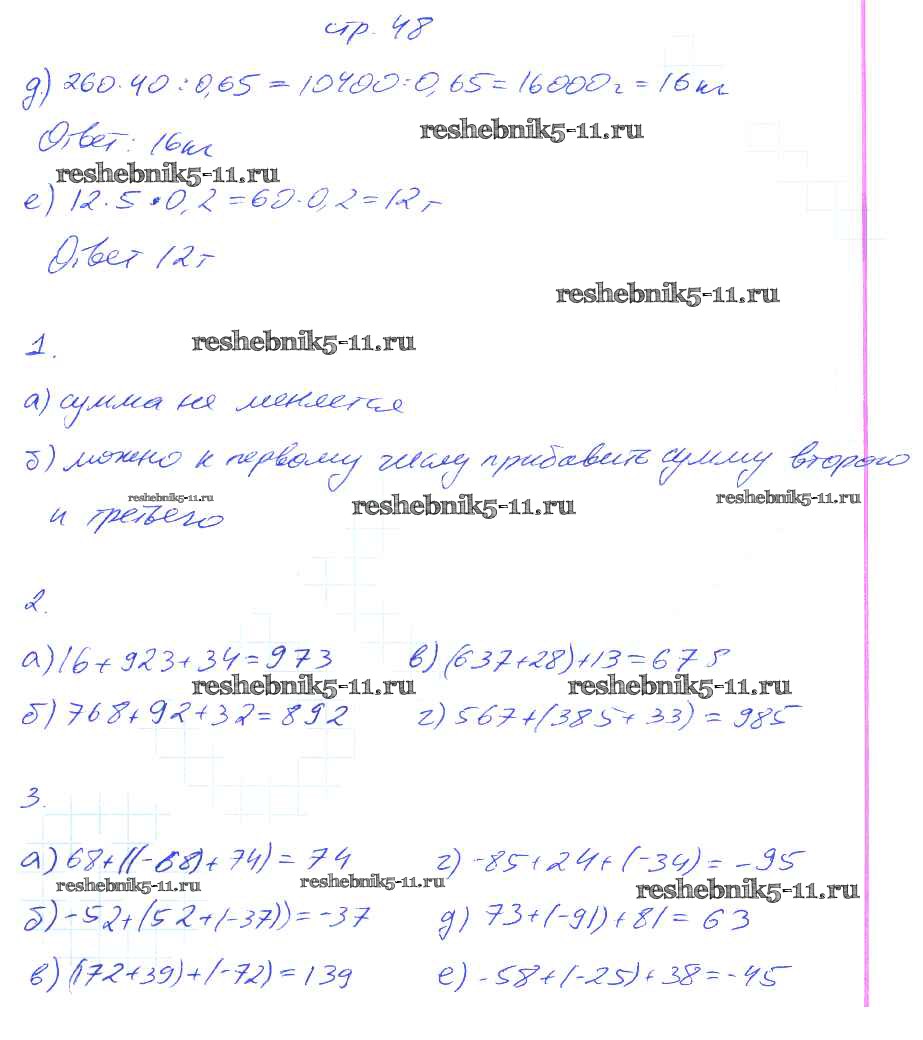 стр. 48
д) 260·40:0,65 = 10400:0,65 = 16000г = 16кг
reshebnik5-11.ru
Ответ: 16кг
reshebnik5-11.ru
е) 12·5·0,2 = 60·0,2 = 12г
Ответ 12г
reshebnik5-11.ru
1. reshebnik5-11.ru
а) сумма не меняется
б) можно к первому числу прибавить сумму второго
reshebnik5-11.ru reshebnik5-11.ru reshebnik5-11.ru
и третьего
2.
а) 16+923+34=973 в) (637+28)+13=678
reshebnik5-11.ru reshebnik5-11.ru
б) 768+92+32=892 г) 567+(385+33)=985
3.
а) 68+((-68)+74)=74 г) -85+24+(-34)=-95
reshebnik5-11.ru reshebnik5-11.ru reshebnik5-11.ru
б) -52+(52+(-37))=-37 д) 73+(-91)+81=63
в) (172+39)+(-72)=139 е) -58+(-25)+38=-45